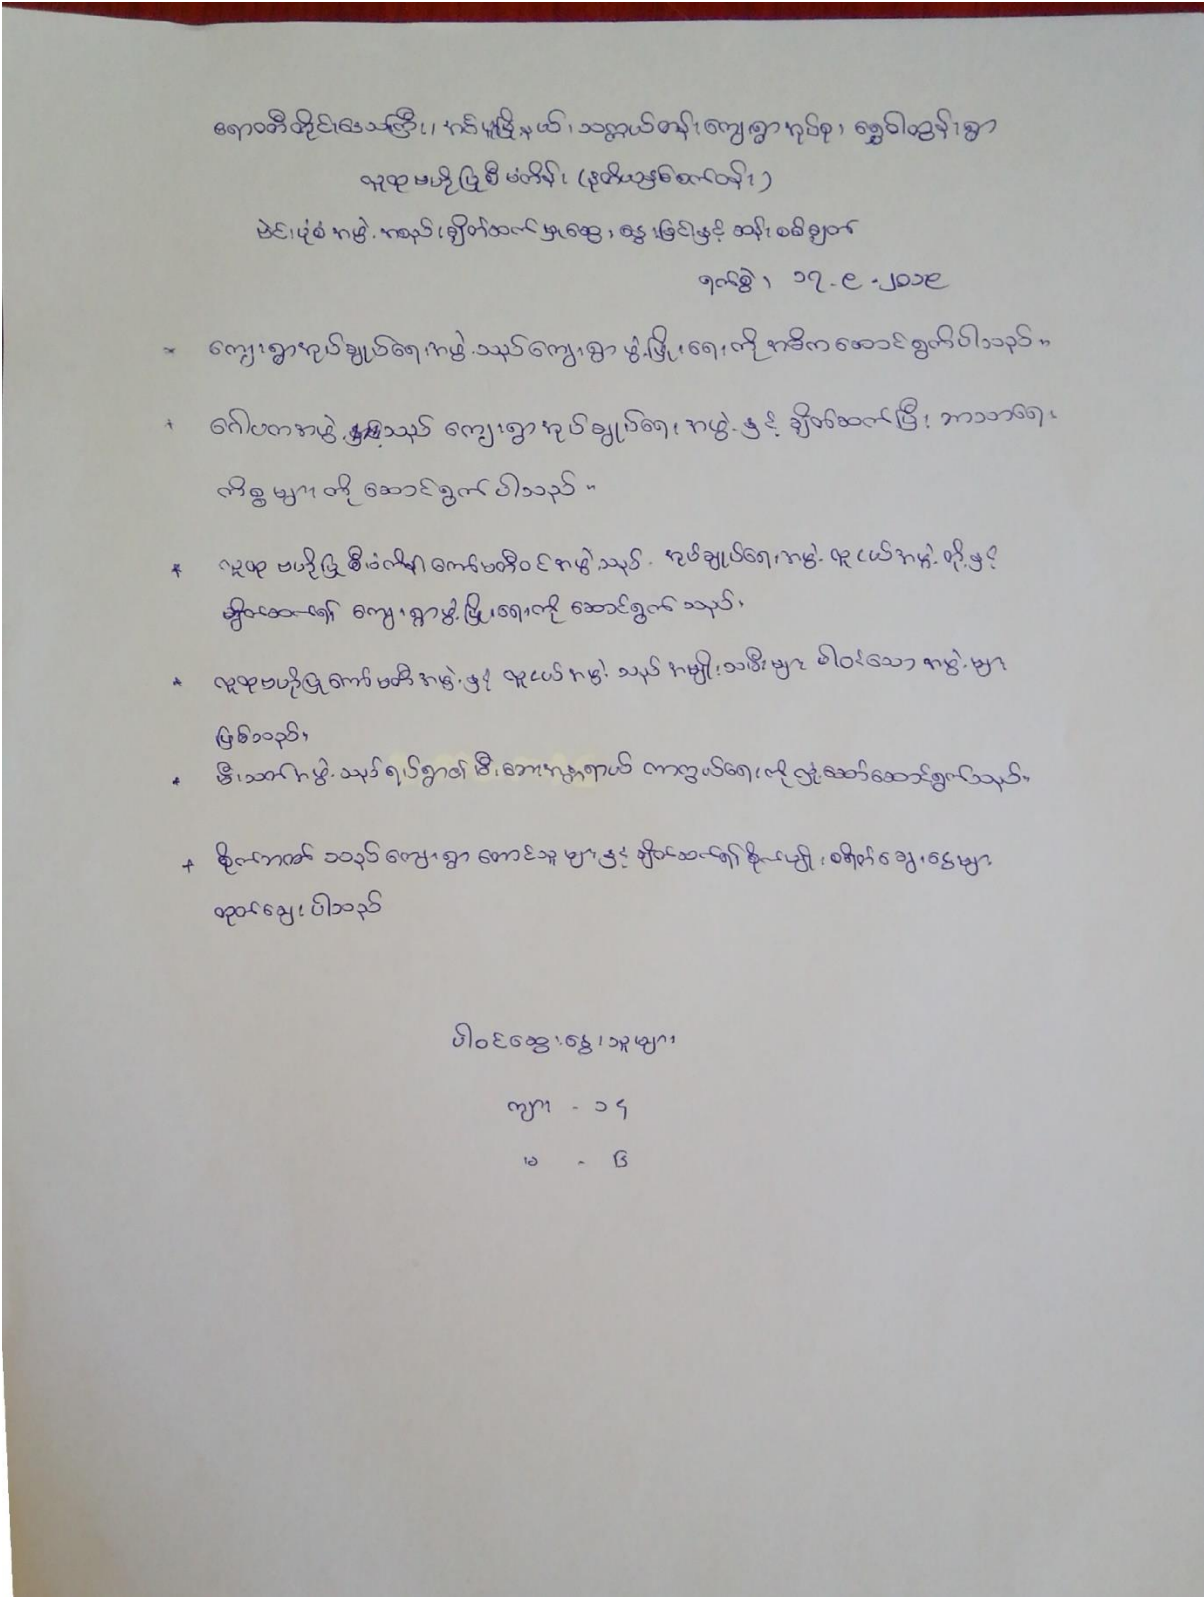 ဧရာဝတီတိုင်းဒေသကြီး၊ အင်္ဂပူမြို့နယ်၊ သက္ကယ်စမ်းကျေးရွာအုပ်စု၊ ရွှေဝါထွန်းရွာ
လူထုဗဟိုပြုစီမံကိန်း (ဒုတိယနှစ်စက်ဝန်း)
ဗင်းပုံစံ အဖွဲ့အစည်းချိတ်ဆက်မှုဆွေးနွေးခြင်းနှင့် ဆန်းစစ်ချက်
ရက်စွဲ၊ ၁၇-၉-၂၀၁၉
* ကျေးရွာအုပ်ချုပ်ရေးအဖွဲ့သည် ကျေးရွာဖွံ့ဖြိုးရေးကို အဓိကဆောင်ရွက်ပါသည်။
* ဂေါပကအဖွဲ့သည် ကျေးရွာအုပ်ချုပ်ရေးအဖွဲ့နှင့် ချိတ်ဆက်ပြီး ဘာသာရေး
ကိစ္စများကို ဆောင်ရွက်ပါသည်။
* လူထုဗဟိုပြုစီမံကိန်းကော်မတီဝင်အဖွဲ့သည် အုပ်ချုပ်ရေးအဖွဲ့ လူငယ်အဖွဲ့တို့နှင့်
ချိတ်ဆက်၍ ကျေးရွာဖွံ့ဖြိုးရေးကို ဆောင်ရွက်သည်။
* လူထုဗဟိုပြုကော်မတီအဖွဲ့နှင့် လူငယ်အဖွဲ့သည် အမျိုးသမီးများ ပါဝင်သော အဖွဲ့များ
ဖြစ်သည်။
* မီးသတ်အဖွဲ့သည် ရပ်ရွာ၏ မီးဘေးအန္တရာယ် ကာကွယ်ရေးကို လှုံ့ဆော်ဆောင်ရွက်သည်။
* စိုက်ဘဏ်သည် ကျေးရွာတောင်သူများနှင့် ချိတ်ဆက်၍ စိုက်ပျိုးစရိတ်ချေးငွေများ
ထုတ်ချေးပါသည်
ပါဝင်ဆွေးနွေးသူများ
ကျား - ၁၄
မ - ၆